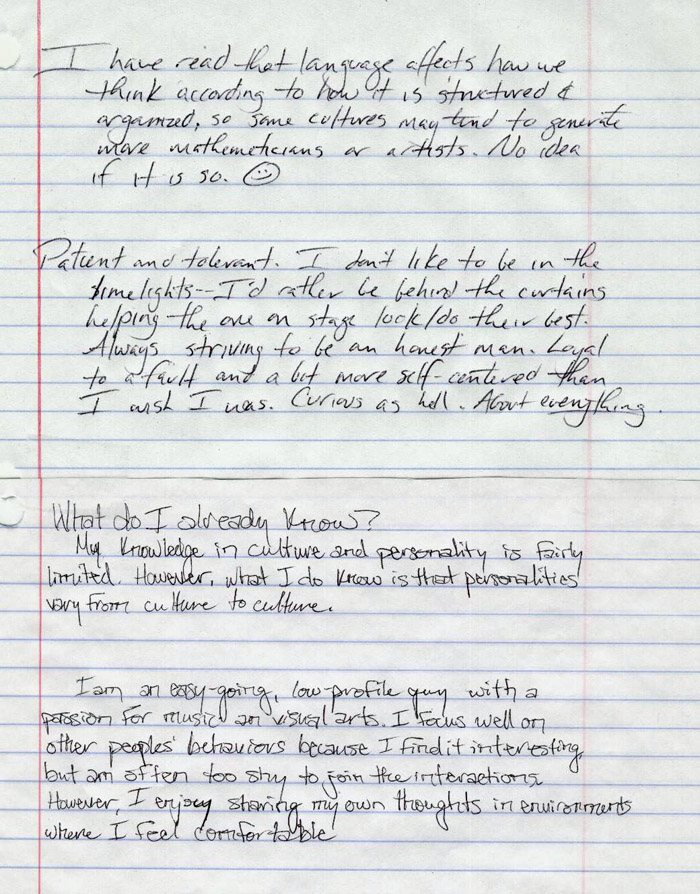 I have read that language affects how we
think according to how it is structured &
organized, so some cultures may tend to generate
more mathemeticians or artists. No idea
if it is so. ☺
Patient and tolerant. I don't like to be in the
limelights--I'd rather be behind the curtains
helping the one on stage look/do their best.
Always striving to be an honest man. Loyal
to a fault and a bit more self-centered than
I wish I was. Curious as hell. About everything.
What do I already know?
My knowledge in culture and personality is fairly
limited. However, what I do know is that personalities
vary from culture to culture.
I am an easy-going, low-profile guy with a
passion for music an visual arts. I focus well on
other peoples' behaviors because I find it interesting,
but am often too shy to join the interactions.
However, I enjoy sharing my own thoughts in environments
where I feel comfortable